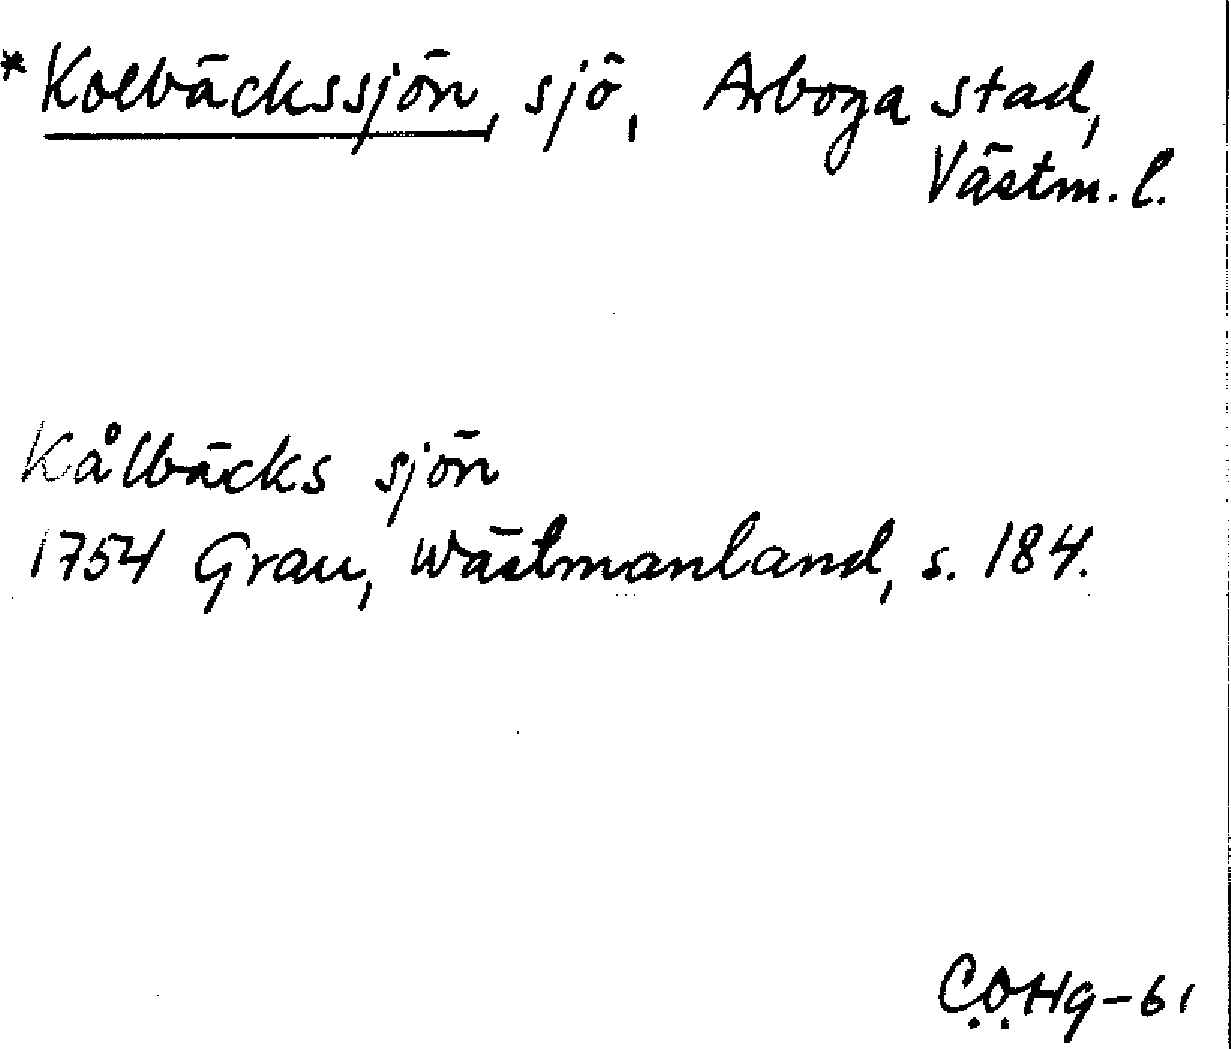 *Kolbäckssjön, sjö, Arboga stad,
Västm. l.
Kålbäcks sjön
1754 Grau, Wästmanland, s. 184.
C.O.Hg-61